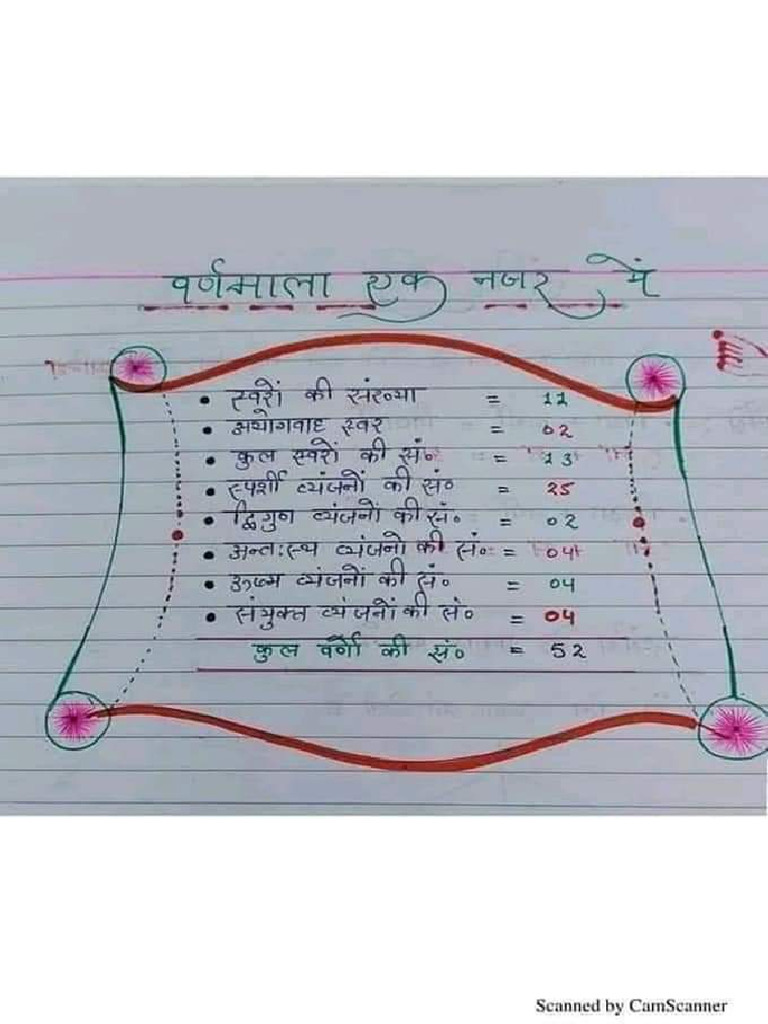 वर्णमाला एक नजर में
• स्वरों की संख्या = 11
• अयोगवाह स्वर = 02
• कुल स्वरों की सं० = 13
• स्पर्शी व्यंजनों की सं० = 25
• द्विगुण व्यंजनों की सं० = 02
• अन्त:स्थ व्यंजनों की सं० = 04
• ऊष्म व्यंजनों की सं० = 04
• संयुक्त व्यंजनों की सं० = 04
कुल वर्णों की सं० = 52
Scanned by CamScanner